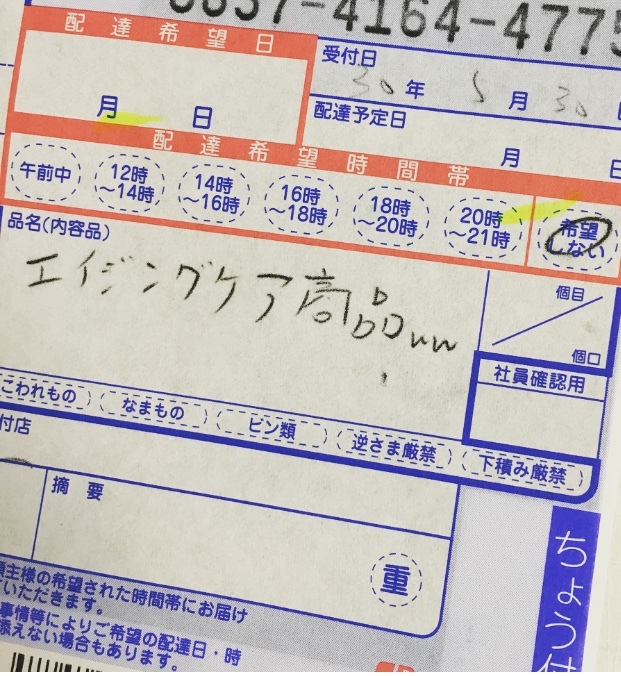 0837-4164-4775
配達希望日
受付日
30年 5月 30日
月 日
配達予定日
月 日
配達希望時間帯
午前中
12時
~14時
14時
~16時
16時
~18時
18時
~20時
20時
~21時
希望
しない
品名(内容品)
エイジングケア商品ww
個目
個口
社員確認用
こわれもの
なまもの
ビン類
逆さま厳禁
下積み厳禁
付店
摘 要
重
主様の希望された時間帯にお届け
いただきます。
事情等によりご希望の配達日・時
添えない場合もあります。
ちょう付